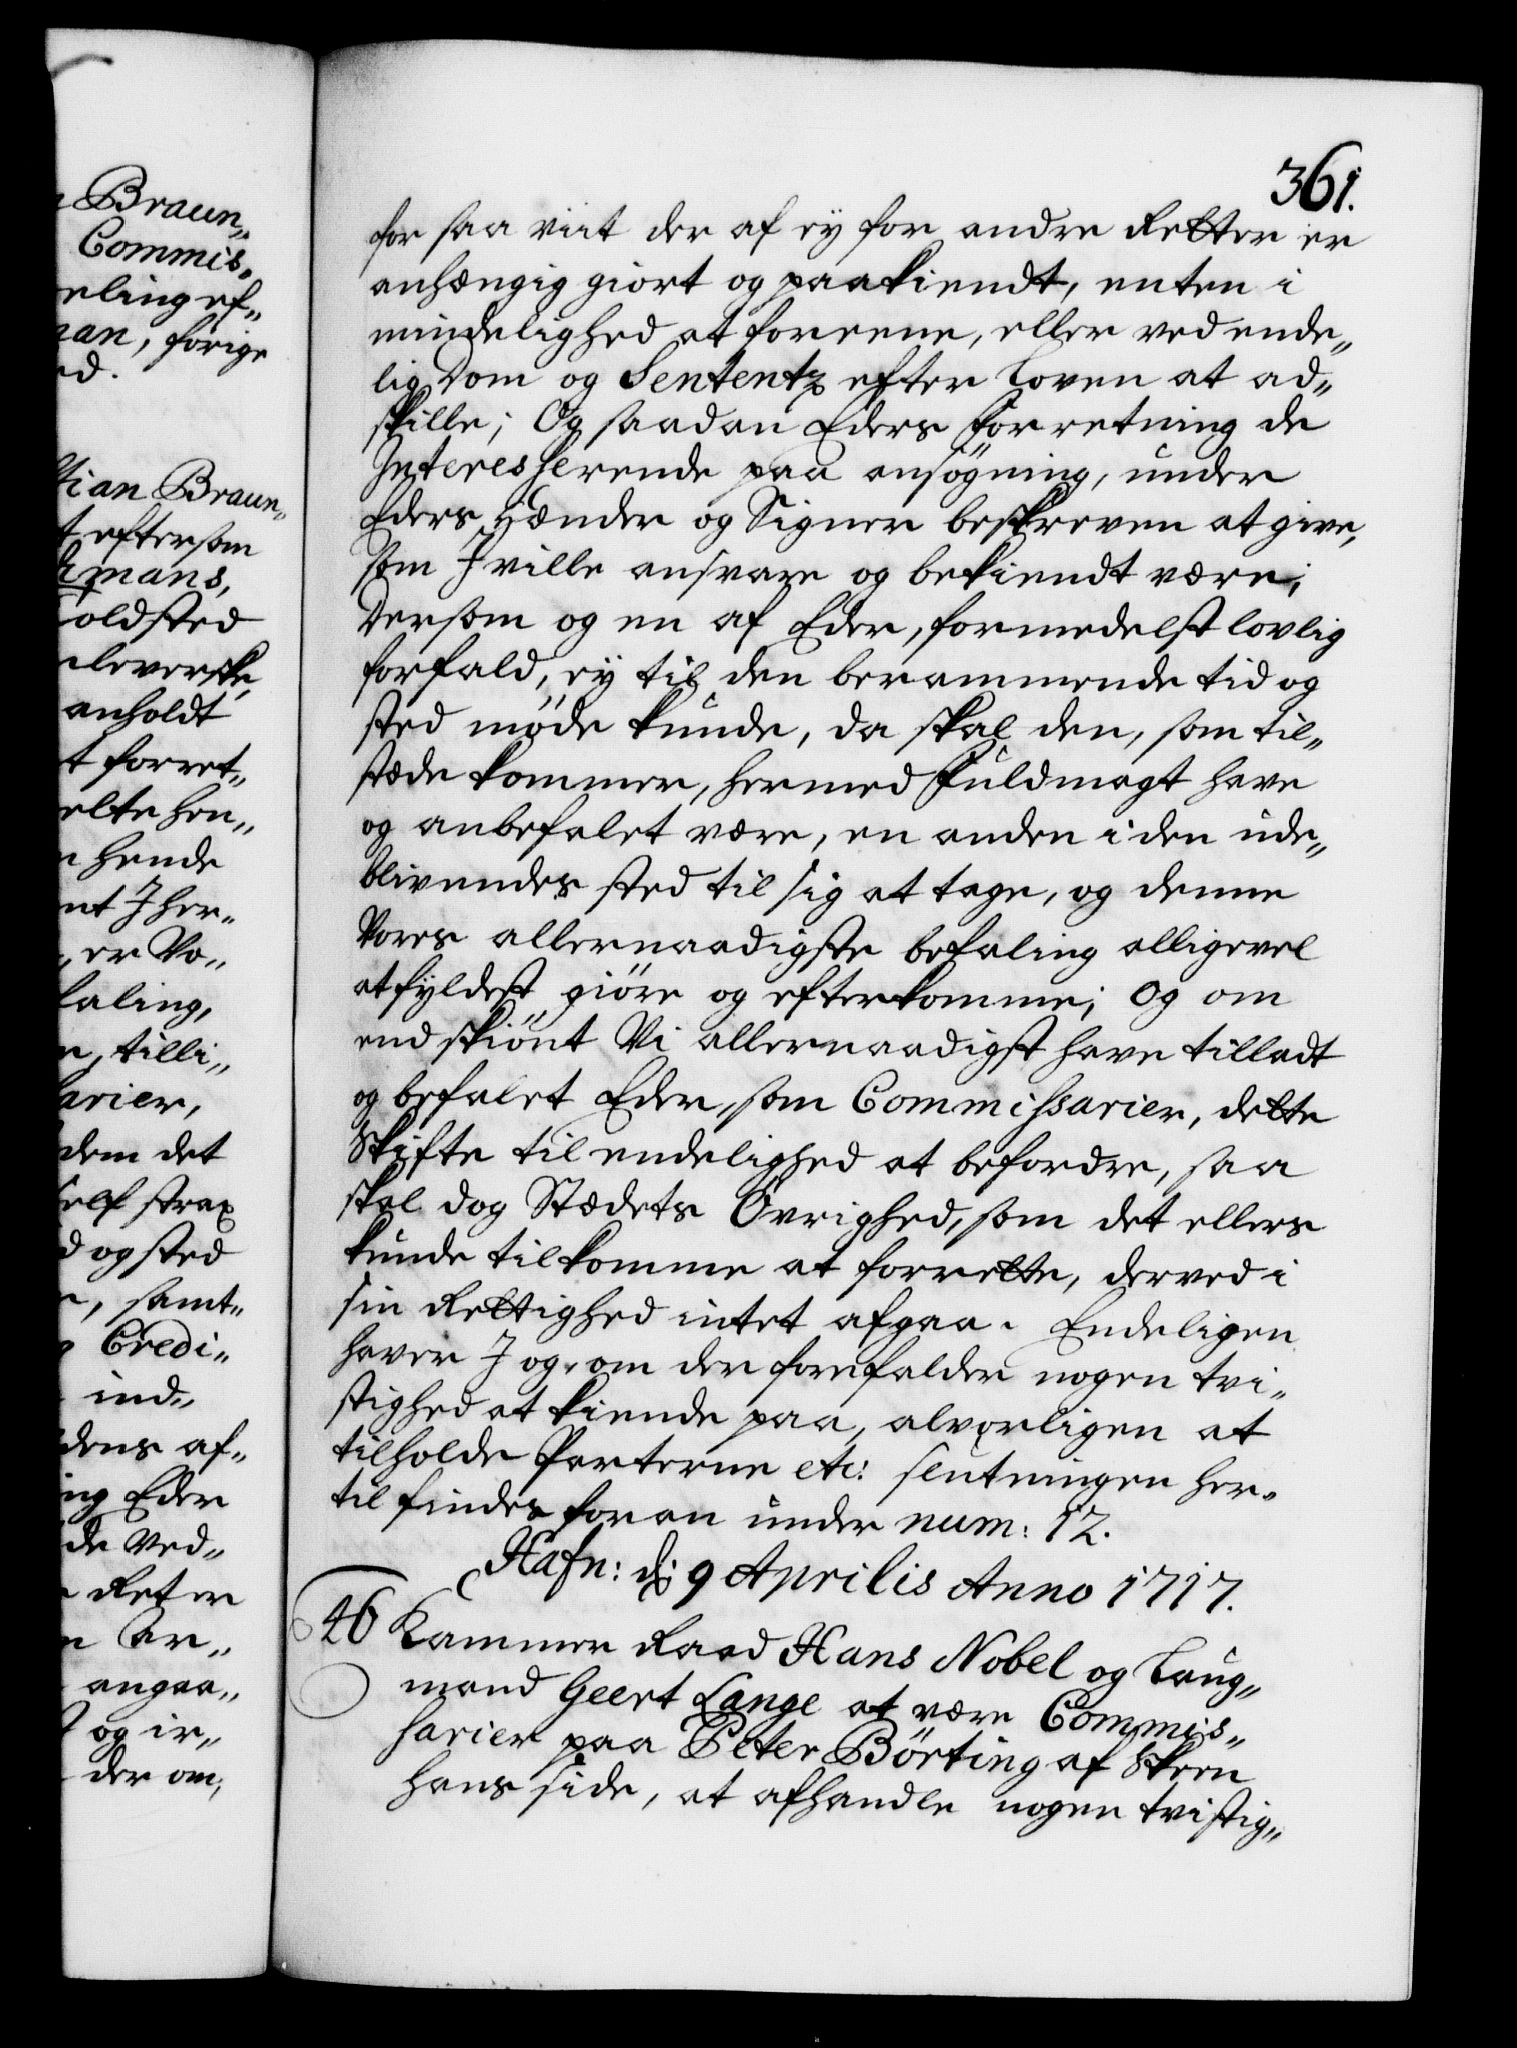 Braun„
Commis„
eling ef„
nan, forige
ed.
tian Braun„
t eftersom
mans,
oldsted
cleverske,
anholdt
t forret„
elte hen„
n hende
nt I her„
, er Vo„
faling,
n, tilli„
sarier,
dem det
self strax
d og sted
r, samt„
g Credi„
ind„
dens af„
ing Eder
de ved„
Ret er
n Ar„
angaa„
og ir„
der om,
361.
for saa vit der af ey for andre Retter er
anhængig giort og paakiendt, enten i
mindelighed at foreene, eller ved ende„
lig Dom og Sententz efter Loven at ad„
skille; Og saadan Eders Forretning de
Interesserende paa ansøgning, under
Eders Hænder og Signer beskreven at give,
som I ville ansvare og bekiendt være;
Dersom og en af Eder, formedelst lovlig
forfald, ey til den berammende tid og
sted møde kunde, da skal den, som til„
stæde kommer, hermed Fuldmagt have
og anbefalet være, en anden i den ude„
blivendes sted til sig at tage, og denne
Vores allernaadigste befaling alligevel
at fyldest giöre og efterkomme; Og om
end skiönt Vi allernaadigst have tilladt
og befalet Eder, som Commissarier, dette
Skifte til endelighed at befordre, saa
skal dog Stædets Övrighed, som det ellers
kunde tilkomme at forrette, derved i
sin Rettighed intet afgaa. Endeligen
haver I og, om der forefalder nogen tvi„
stighed at kiende paa, alvorligen at
tilholde Parterne etc: slutningen her„
til findes foran under num: 12.
Hafn: d: 9 Aprilis Anno 1717.
46 Kammer Raad Hans Nobel og Laug„
mand Geert Lange at være Commis„
sarier paa Peter Börting af Skeen
hans side, at afhandle nogen tvistig„